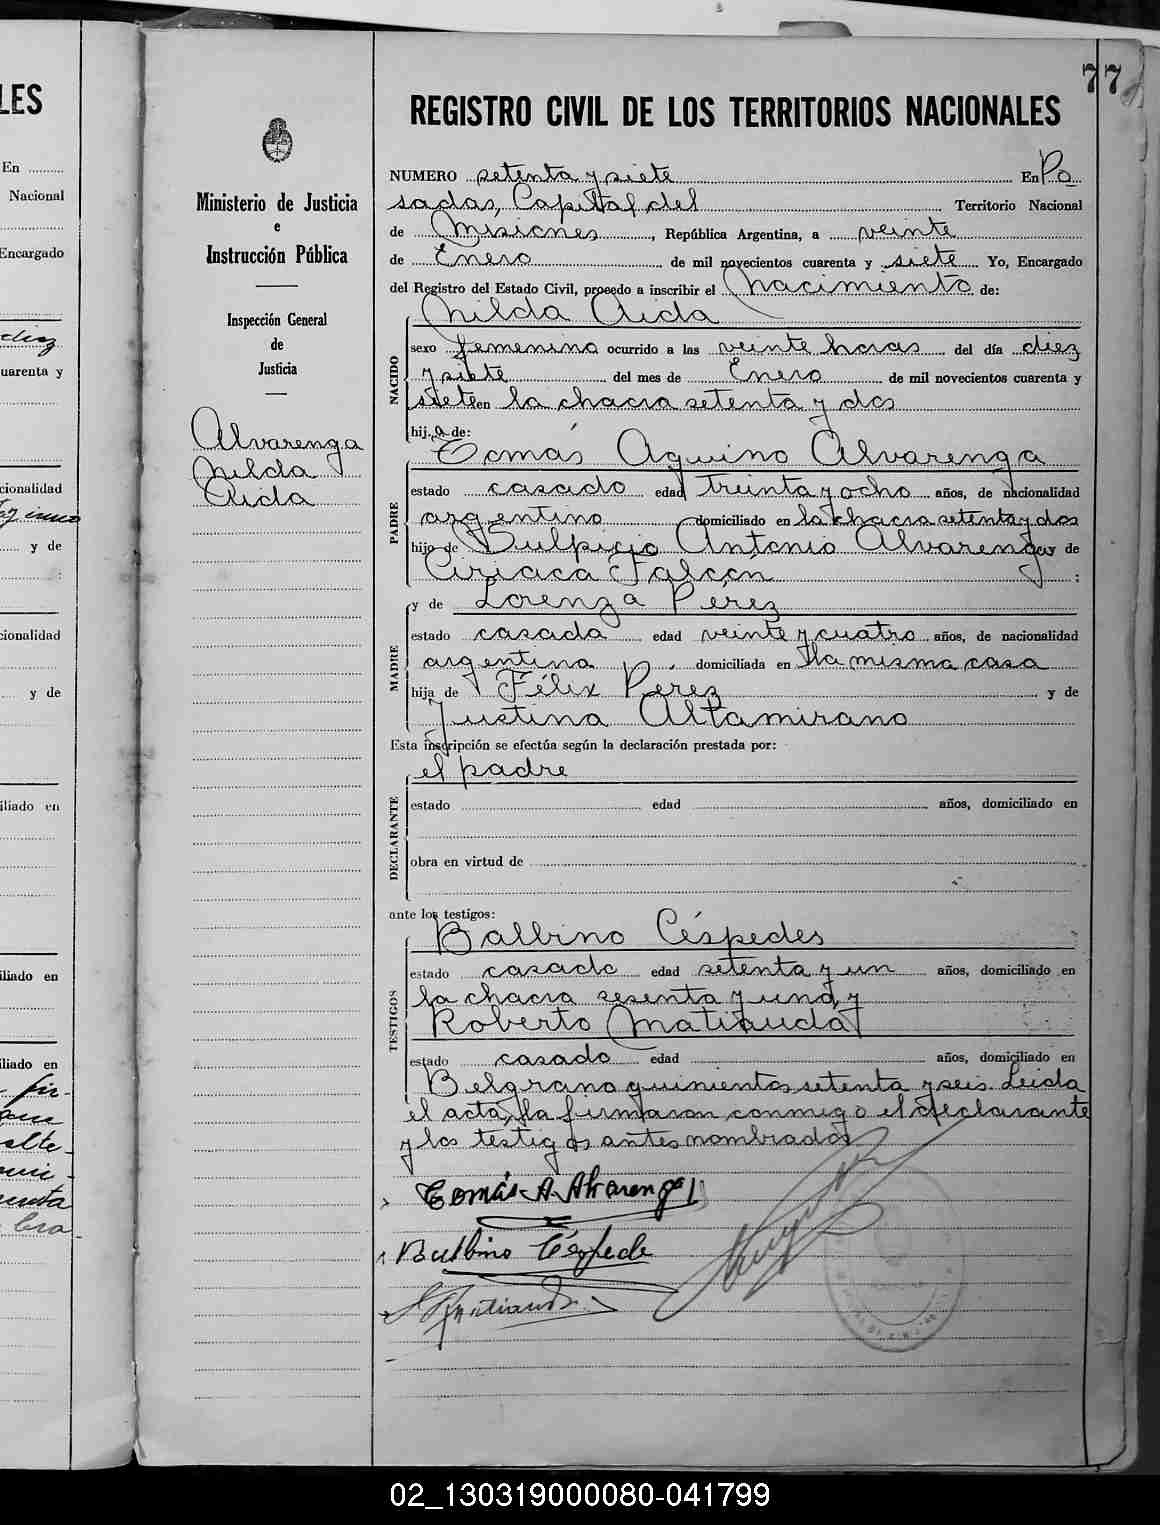 LES
En
Nacional
Encargado
diez
uarenta y
cionalidad
y de
cionalidad
y de
iliado en
iliado en
iliado en
77
REGISTRO CIVIL DE LOS TERRITORIOS NACIONALES
Ministerio de Justicia
e
Instrucción Pública
Inspección General
de
Justicia
Alvarenga
Nilda
Aida
NUMERO setenta y siete En Po
sadas, Capital del Territorio Nacional
de Misiones, República Argentina, a veinte
de Enero de mil novecientos cuarenta y siete Yo, Encargado
del Registro del Estado Civil, procedo a inscribir el Nacimiento de:
NACIDO
Nilda Aida
sexo femenino ocurrido a las veinte horas del día diez
y siete del mes de Enero de mil novecientos cuarenta y
siete en la chacra setenta y dos
hija de:
PADRE
Tomás Aquino Alvarenga
estado casado edad treinta y ocho años, de nacionalidad
argentino domiciliado en la chacra setenta y dos
hijo de Sulpicio Antonio Alvarenga y de
Ciriaca Falcón ;
MADRE
y de Lorenza Pérez
estado casada edad veinte y cuatro años, de nacionalidad
argentina, domiciliada en la misma casa
hija de Félix Perez y de
Justina Altamirano
Esta inscripción se efectúa según la declaración prestada por:
DECLARANTE
el padre
estado edad años, domiciliado en
obra en virtud de
ante los testigos:
TESTIGOS
Balbino Céspedes
estado casado edad setenta y un años, domiciliado en
la chacra sesenta y uno, y
Roberto Matiauda
estado casado edad años, domiciliado en
Belgrano quinientos setenta y seis. Leida
el acta, la firmaron conmigo el declarante
y los testigos antes nombrados
Tomás A. Alvarenga
Balbino Céspede
02_130319000080-041799